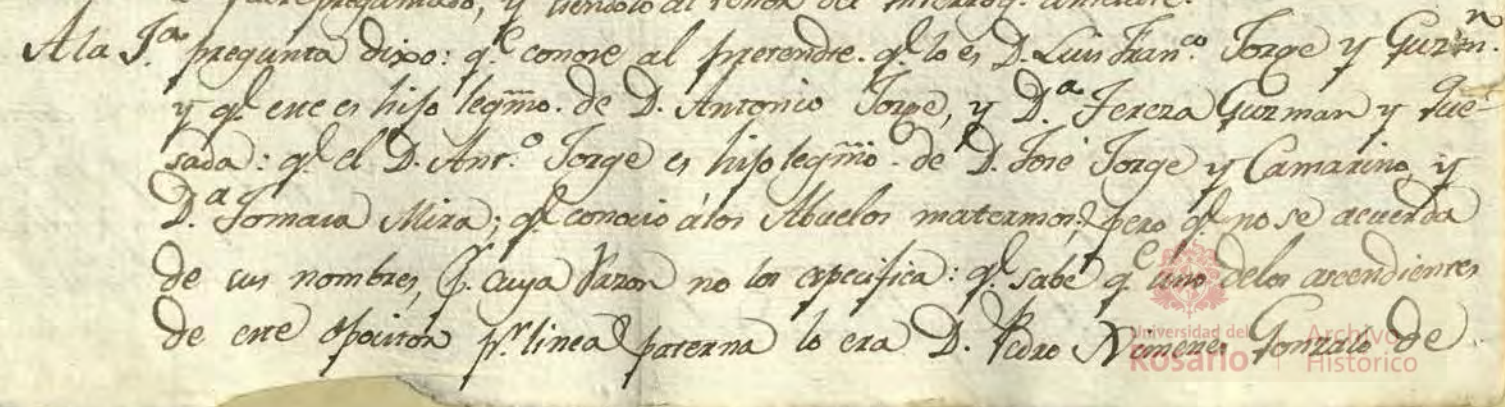 fuere preguntado, y siendolo al tenor del interrog.
A la 1.ª pregunta dixo: q.e conoce al pretend.te q.e lo es D. Luis Fran.co Jorge y Guzm.n
y q.e este es hijo legmo. de D. Antonio Jorge, y D.ª Tereza Guzman y Que-
sada: q.e el D. Ant.o Jorge es hijo legmo. de D. José Jorge y Camarino, y
D.ª Tomasa Mira; q.e conocio á los Abuelos maternos; pero q.e no se acuerda
de sus nombres, p.r cuya razon no los especifica: q.e sabe q.e uno delos ascendientes
de este opocitor p.r linea paterna lo era D. Pedro Ximenes Gonzalo de
Universidad del Rosario | Archivo Histórico